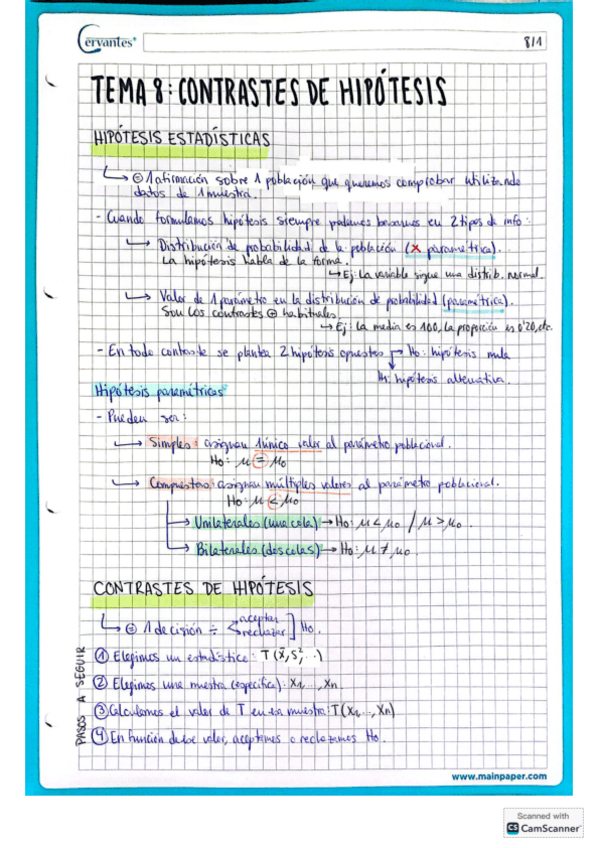 Cervantes®
8/1
TEMA 8: CONTRASTES DE HIPÓTESIS
HIPÓTESIS ESTADÍSTICAS
↳ ⊜ 1 afirmación sobre 1 población que queremos comprobar utilizando
datos de 1 muestra.
- Cuando formulamos hipótesis siempre podemos basarnos en 2 tipos de info:
↳ Distribución de probabilidad de la población (X paramétrica).
La hipótesis habla de la forma.
↳ Ej: La variable sigue una distrib. normal.
↳ Valor de 1 parámetro en la distribución de probabilidad (paramétrica).
Son los contrastes ⊕ habituales.
↳ Ej: la media es 100, la proporción es 0'20, etc.
- En todo contraste se plantea 2 hipótesis opuestas → H0: hipótesis nula
H1: hipótesis alternativa.
Hipótesis paramétricas
- Pueden ser:
↳ Simples: asignan 1 único valor al parámetro poblacional.
H0: μ = μ0
↳ Compuestas: asignan múltiples valores al parámetro poblacional.
H0: μ < μ0
→ Unilaterales (una cola) → H0: μ < μ0 / μ > μ0
↳ Bilaterales (dos colas) → H0: μ ≠ μ0
CONTRASTES DE HIPÓTESIS
↳ ⊜ 1 decisión ÷ < aceptar
rechazar ] H0.
PASOS A SEGUIR
① Elegimos un estadístico: T (x̄, s², ...)
② Elegimos una muestra (específica): X1, ..., Xn.
③ Calculamos el valor de T en esa muestra: T(X1, ..., Xn)
④ En función de ese valor, aceptamos o rechazamos H0.
www.mainpaper.com
Scanned with
CS CamScanner